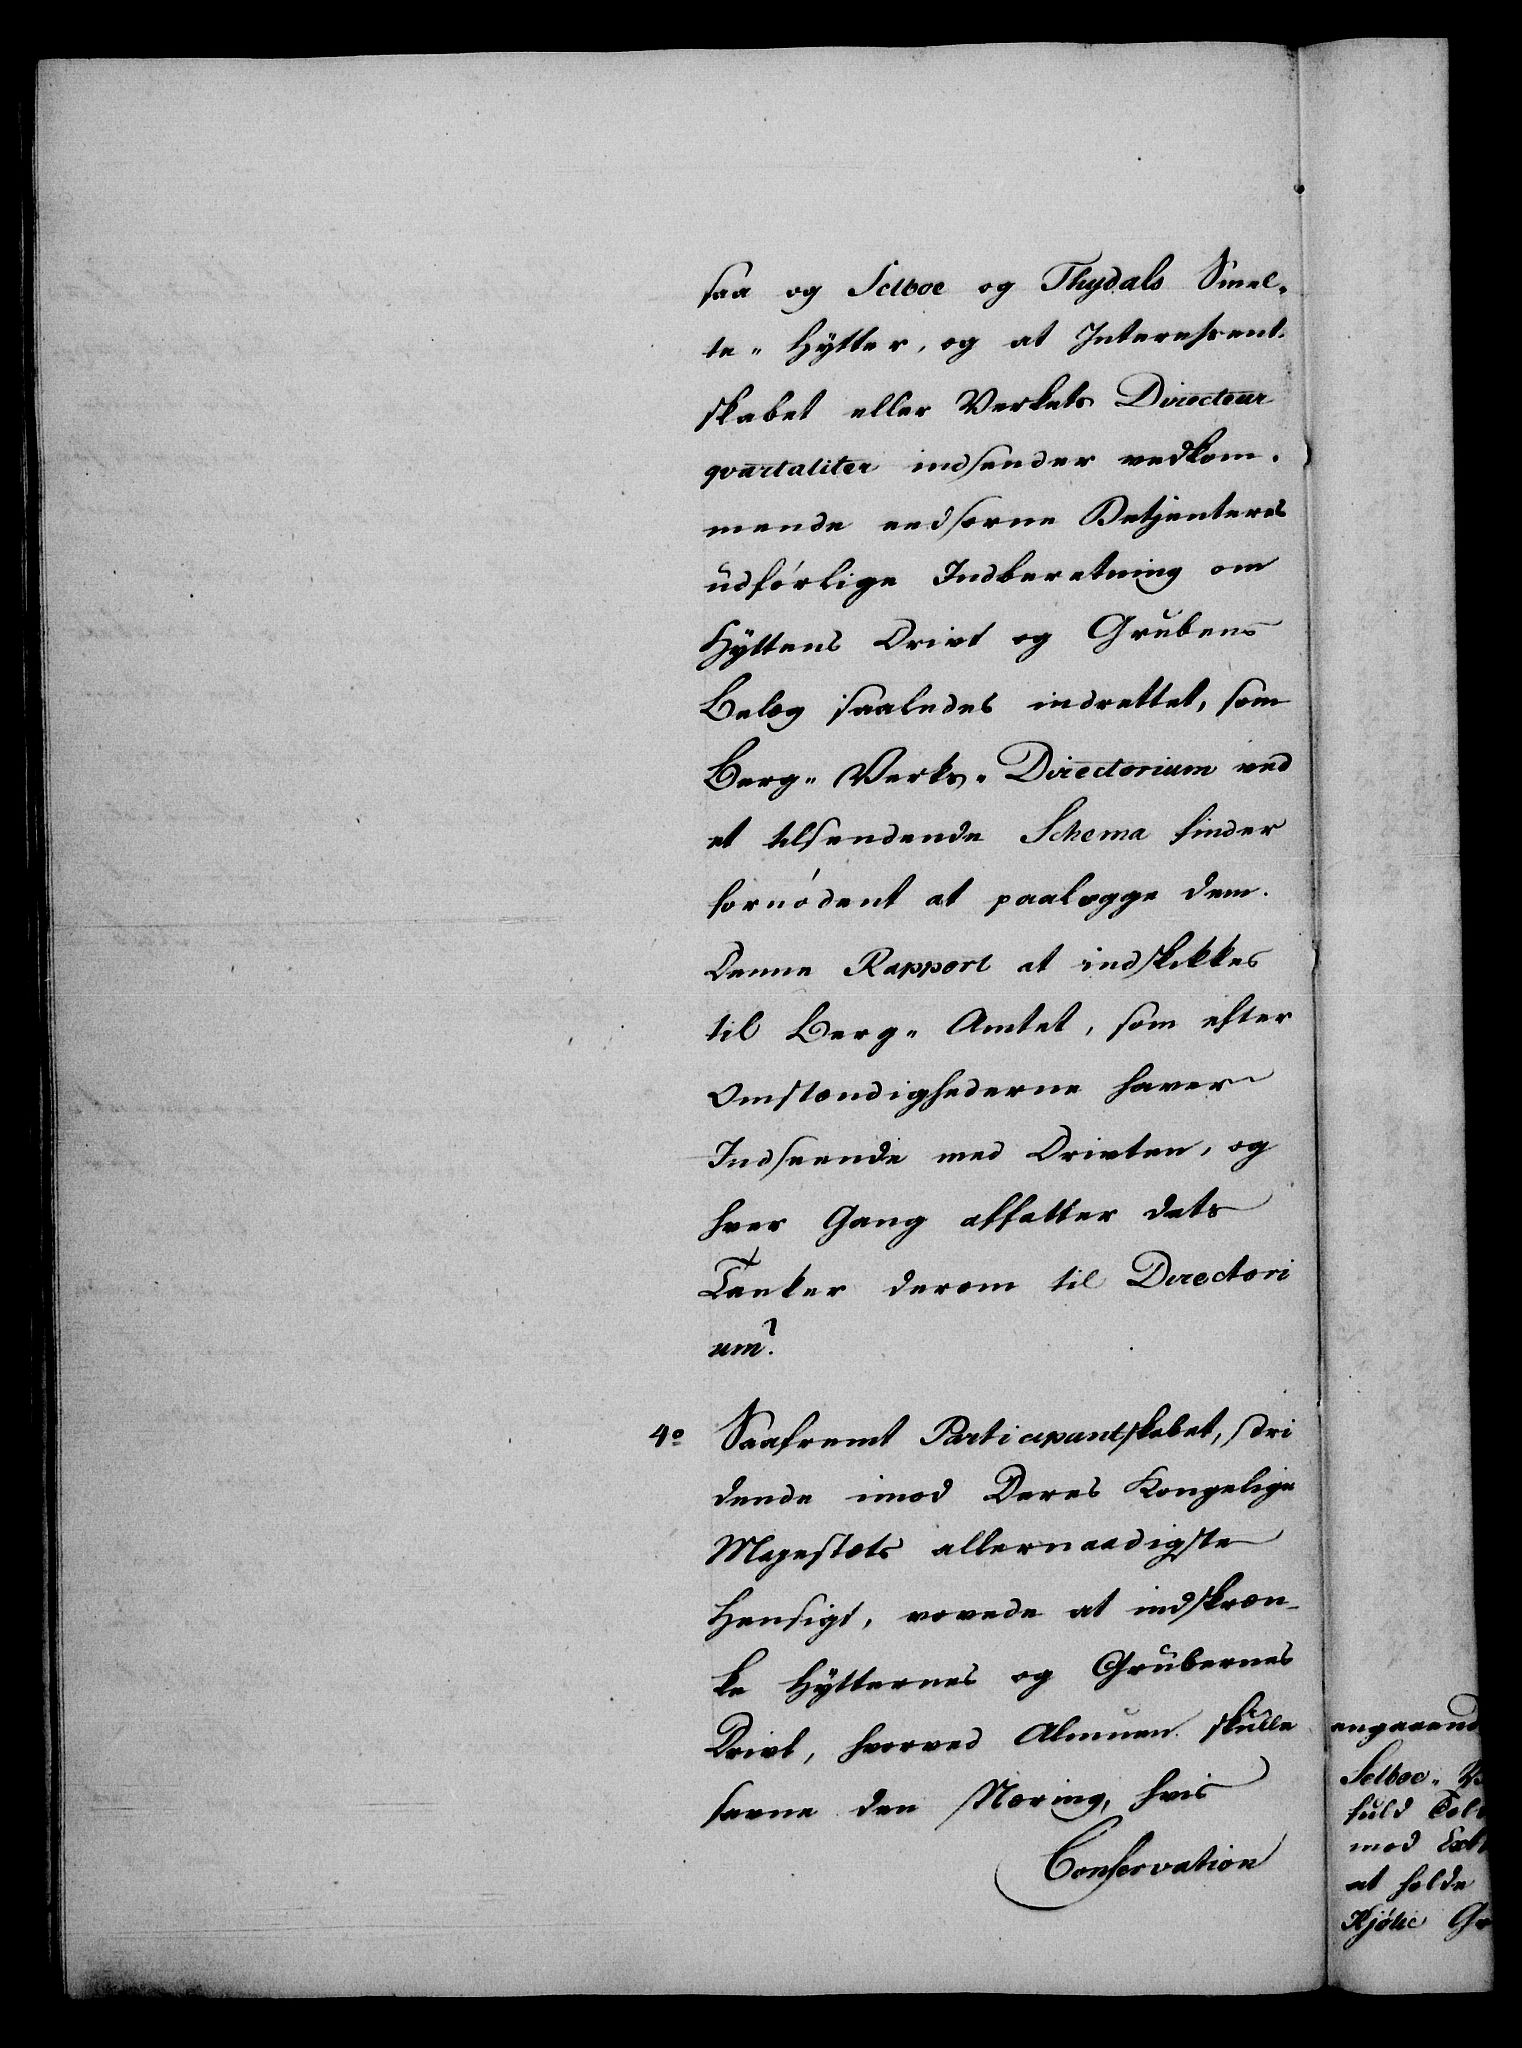 saa og Selboe og Thydals Smel-
te- Hÿtter, og at Interessent-
skabet eller Verkets Directeur
qvartaliter indsender vedkom-
mende eedsorne Betjenteres
udførlige Indberetning om
Hÿttens Drivt og Grubens
Belæg saaledes indrettet, som
Berg- Verks- Directorium ved
et tilsendende Schema finder
fornødent at paalægge dem.
Denne Rapport at indskikkes
til Berg- Amtet, som efter
Omstændighederne haver
Indseende med Drivten, og
hver Gang affatter dets
Tanker derom til Directori
um?
4o Saafremt Participantskabet, stri
dende imod Deres Kongelige
Majestæts allernaadigste
Hensigt, vovede at indskræn-
ke Hÿtternes og Grubernes
Drivt, hvorved Almuen skulle
savne den Næring, hvis
Conservation
angaaend
Selboe- V
fuld Told
mod
at holde
Kjølie Gr